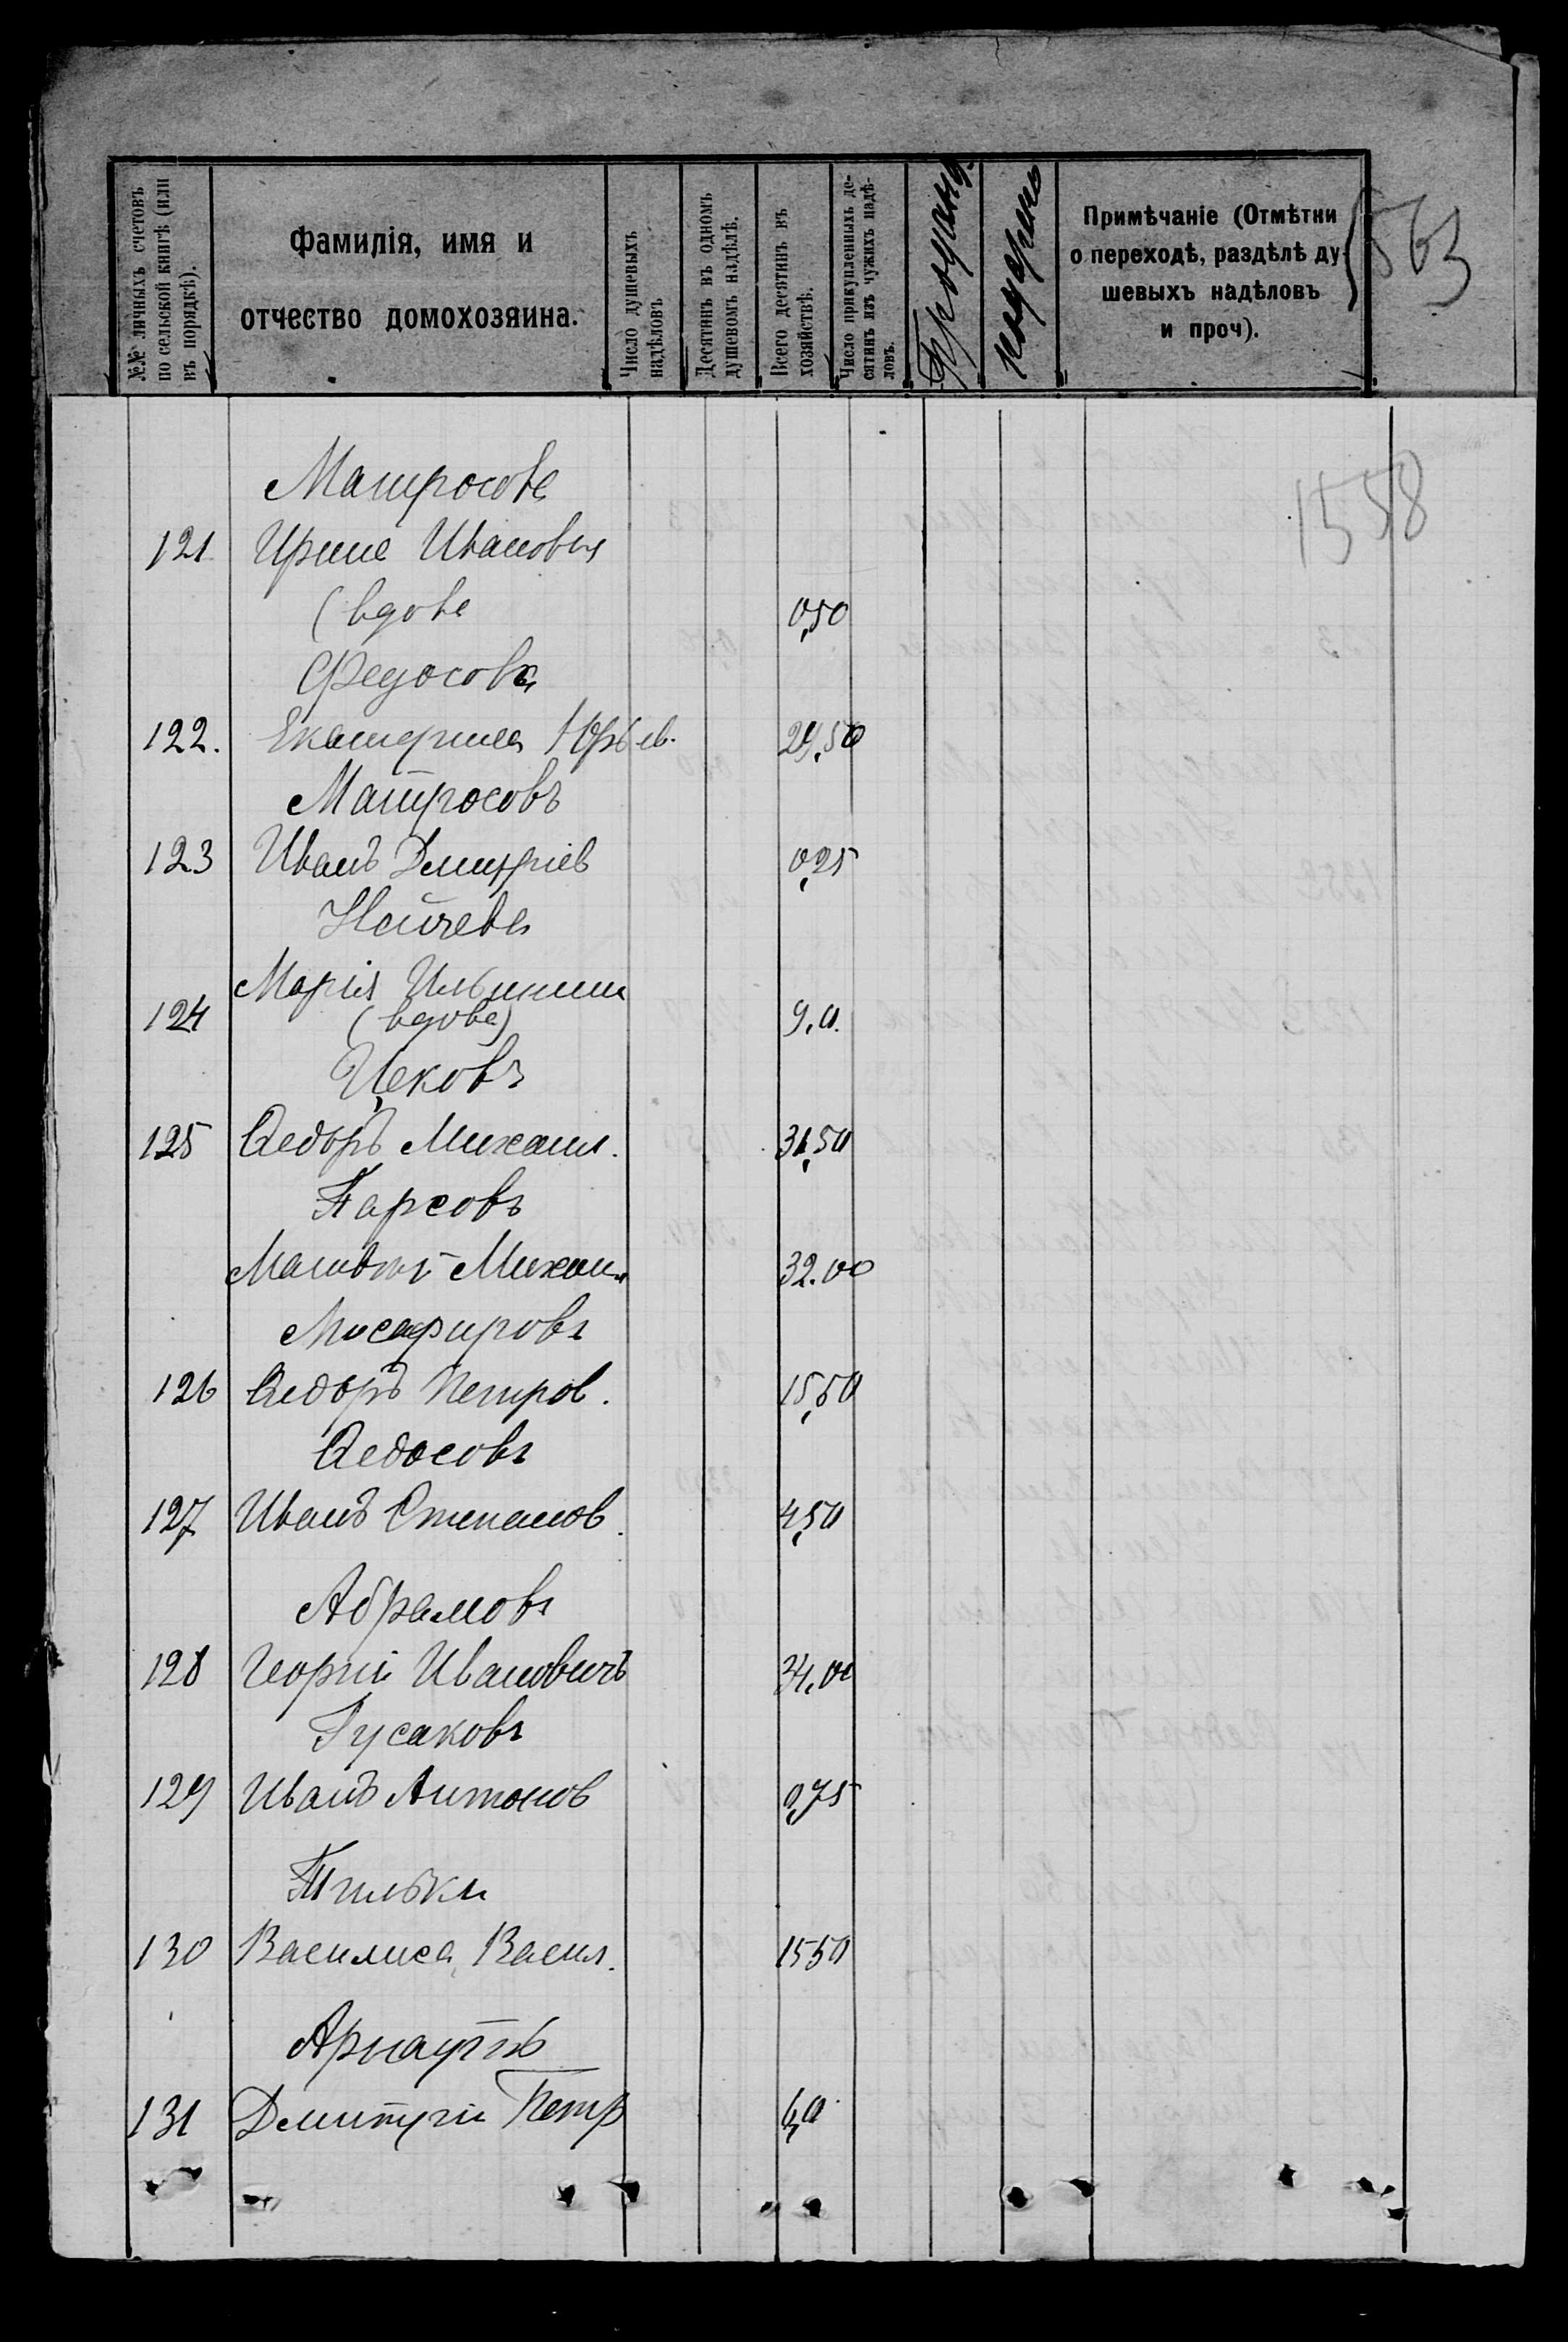 №№ личныхъ счетовъ по сельской книгѣ (или въ порядкѣ).
Фамилія, имя и отчество домохозяина.
Число душевыхъ надѣловъ
Десятинъ въ одномъ душевомъ надѣлѣ.
Всего десятинъ въ хозяйствѣ.
Число прикупленныхъ десятинъ изъ чужихъ надѣловъ.
Примѣчаніе (Отмѣтки о переходѣ, раздѣлѣ душевыхъ надѣловъ и проч).
563
1558
Матросова
121 Ирина Ивановна
(вдова 0,50
Федосова
122. Екатерина Юрьев. 29,50
Матросовъ
123 Иванъ Дмитріев 0,25
Нейчева
Марія Ильинич
124 (вдова) 9,0.
Цековъ
125 Ѳедоръ Михаил. 31,50
Парсовъ
Матвѣй Михаил. 32.00
Мисафировъ
126 Ѳедоръ Петров. 15,50
Ѳедосовъ
127 Иванъ Степанов. 4,50
Абрамовъ
128 Георгій Ивановичъ 34,00
Гусаковъ
129 Иванъ Антонов 0,75
130 Василиса Васил. 1550
Арнаутъ
131 Дмитрій Петр 6,0